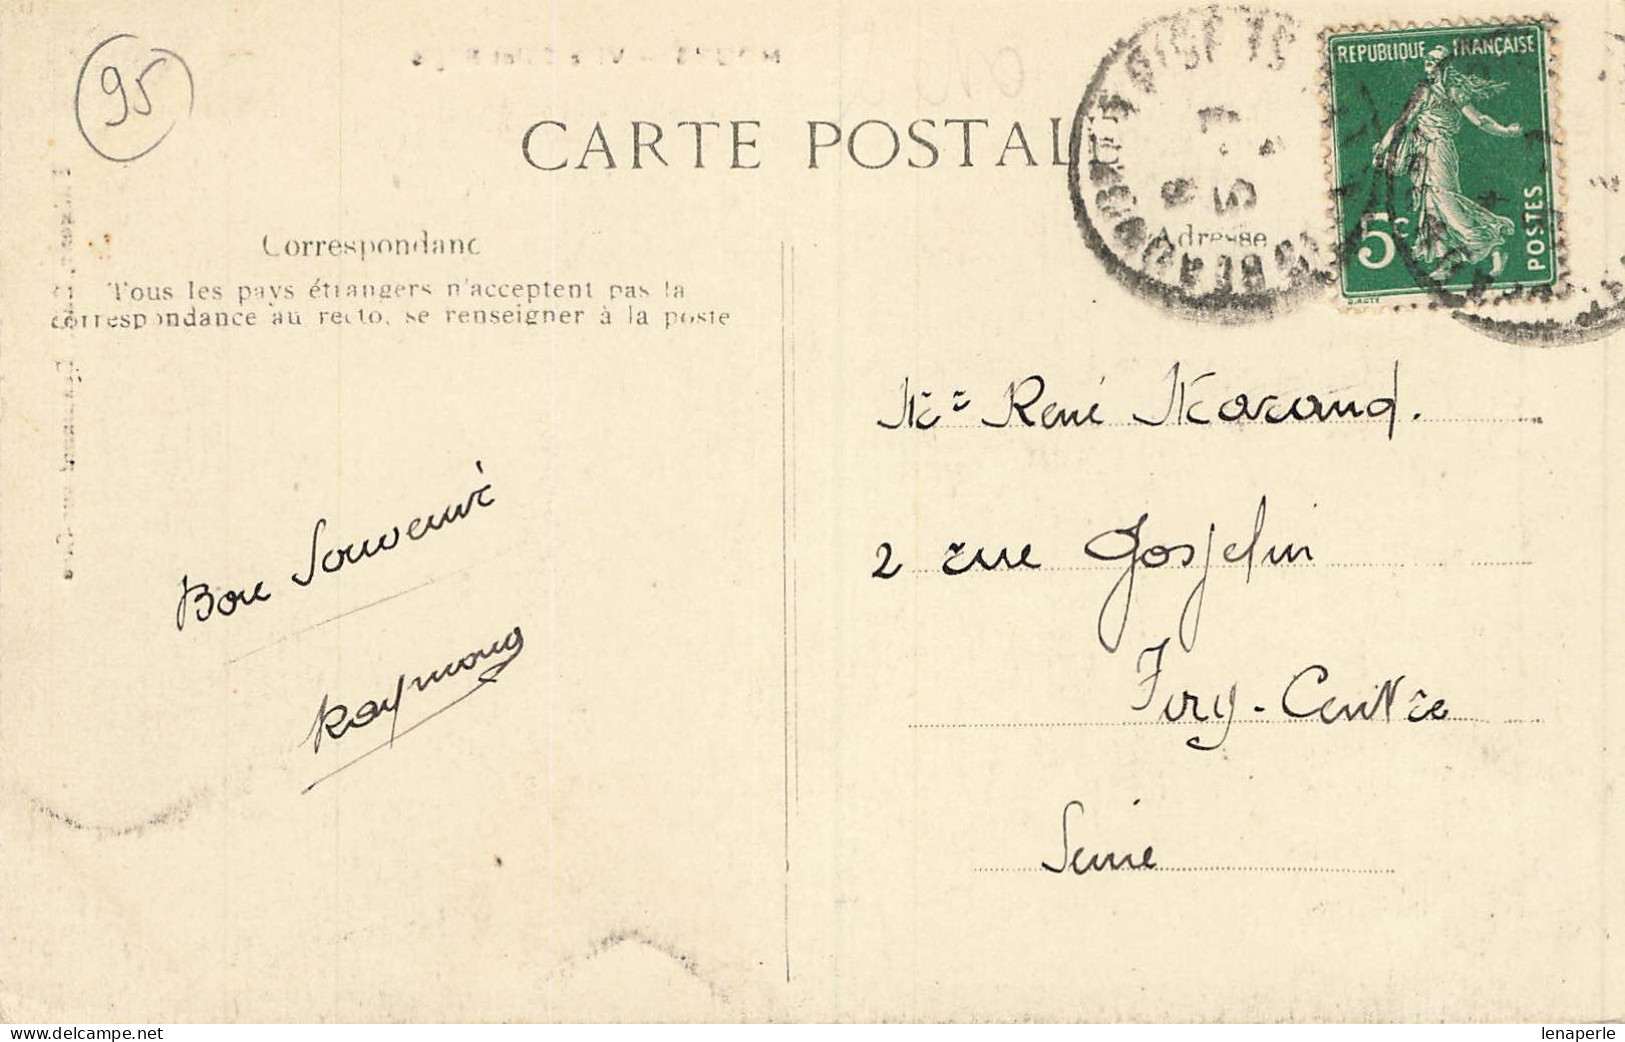 95
CARTE POSTAL
REPUBLIQUE FRANÇAISE
5c
POSTES
Correspondanc
Adresse
Tous les pays étrangers n'acceptent pas la
correspondance au recto, se renseigner à la poste
Mr René Marand.
2 rue Gosjelin
Ivry-Centre
Seine
Bon Souvenir
Raymond
www.delcampe.net
lenaperle